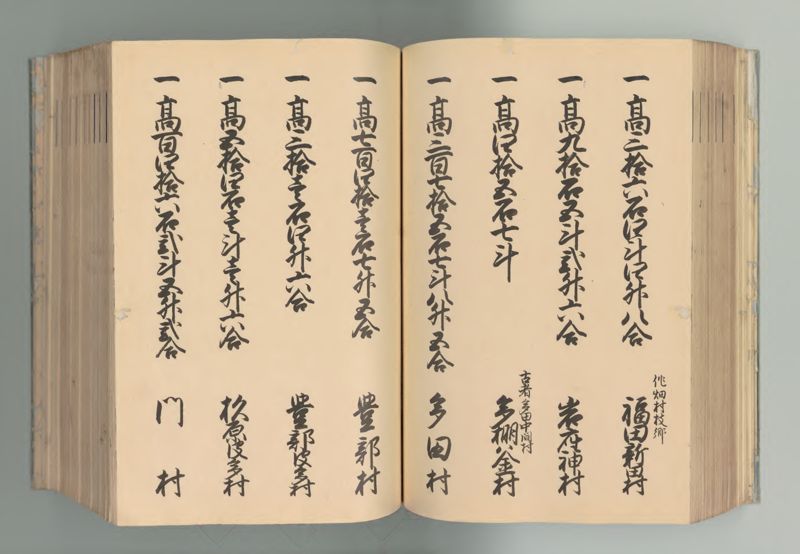 一 高二拾六石四斗四升八合
作畑村枝郷
福田新田村
一 高九拾石五斗弐升六合
岩神村
一 高四拾五石七斗
古者多田中向村
釜村
一 高二百七拾五石七斗八升五合
多田村
一 高七百四拾壱石七升五合
豊部村
一 高二拾壱石四升六合
豊部村
一 高五拾四石壱斗壱升六合
村
一 高百四拾六石弐斗五升弐合
門村